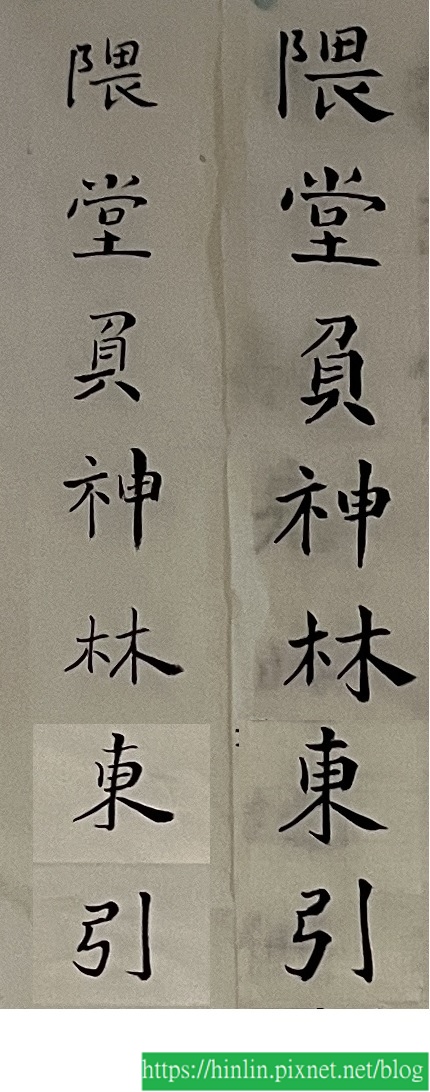 隈堂負神林東引
隈堂負神林東引
https://hinlin.pixnet.net/blog